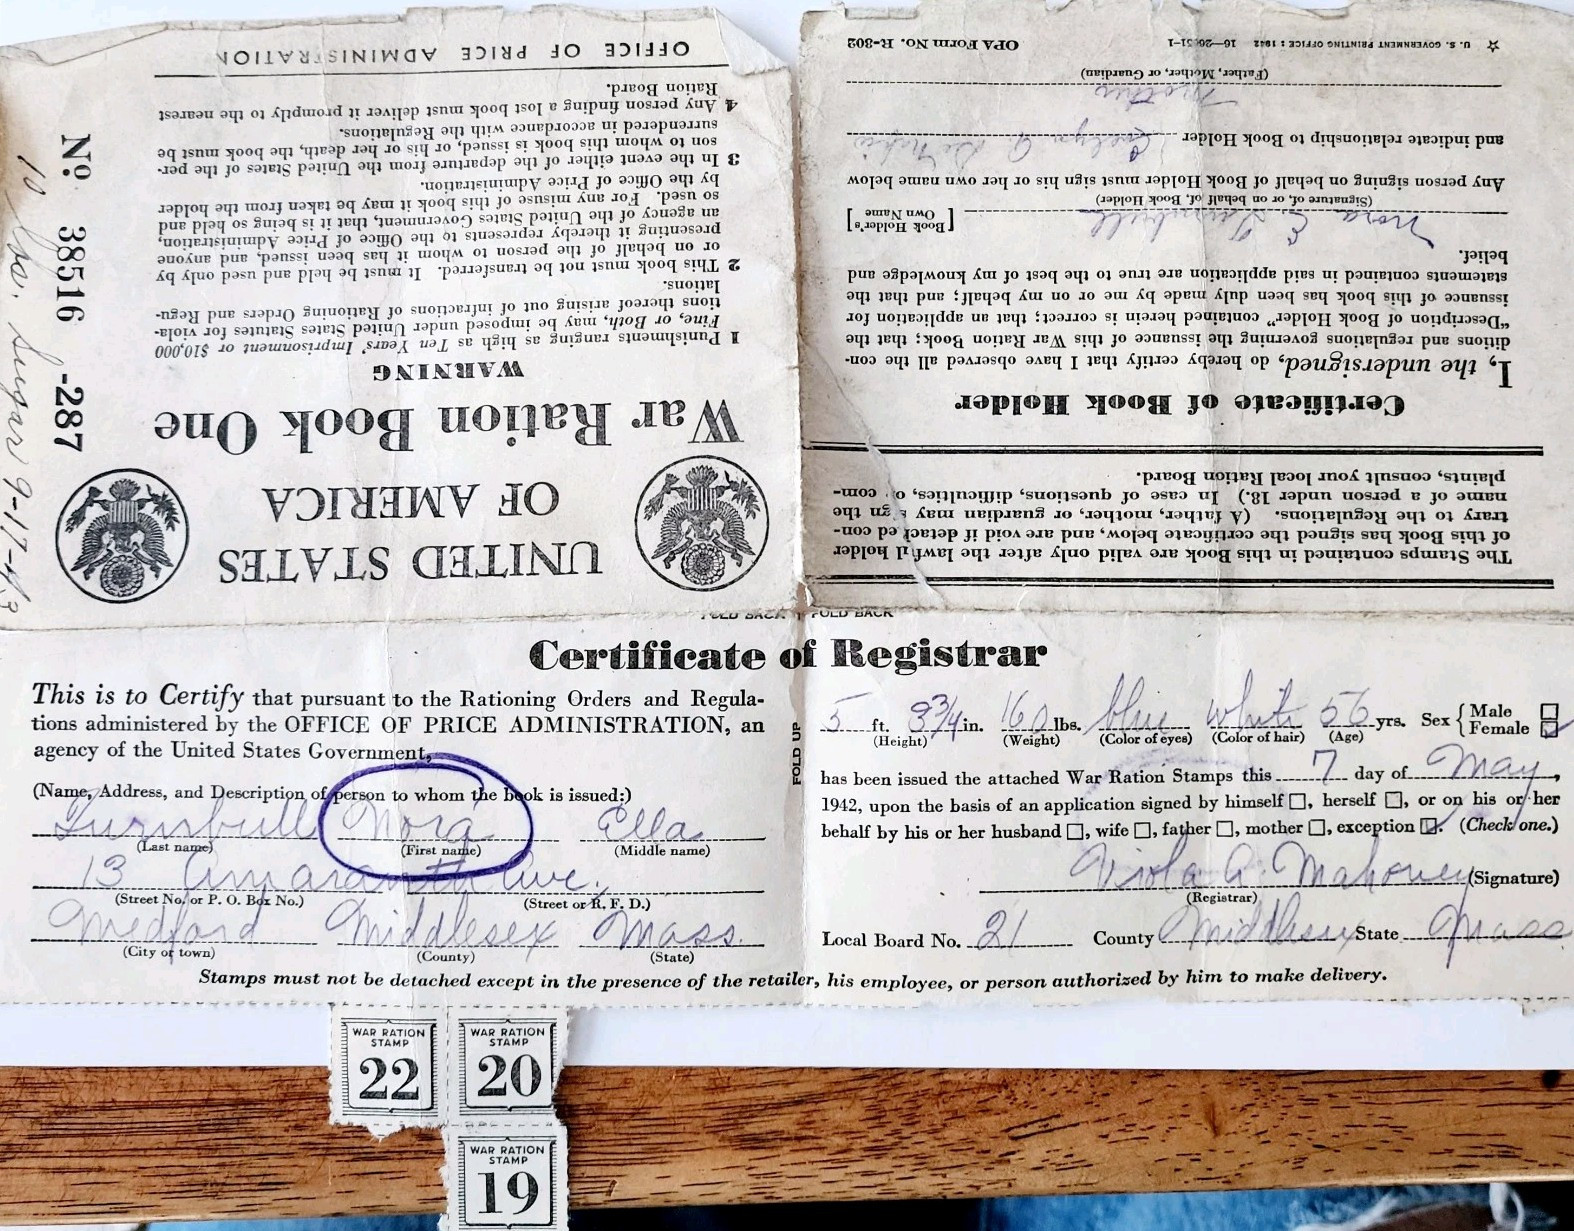 OFFICE OF PRICE ADMINISTRATION
4 Any person finding a lost book must deliver it promptly to the nearest
Ration Board.
3 In the event either of the departure from the United States of the per-
son to whom this book is issued, or his or her death, the book must be
surrendered in accordance with the Regulations.
2 This book must not be transferred. It must be held and used only by
or on behalf of the person to whom it has been issued, and anyone
presenting it thereby represents to the Office of Price Administration,
an agency of the United States Government, that it is being so held and
so used. For any misuse of this book it may be taken from the holder
by the Office of Price Administration.
1 Punishments ranging as high as Ten Years' Imprisonment or $10,000
Fine, or Both, may be imposed under United States Statutes for viola-
tions thereof arising out of infractions of Rationing Orders and Regu-
lations.
WARNING
War Ration Book One
UNITED STATES
OF AMERICA
No. 38516 -287
10 lbs. Sugar 9-17-43
Certificate of Book Holder
I, the undersigned, do hereby certify that I have observed all the con-
ditions and regulations governing the issuance of this War Ration Book; that the
"Description of Book Holder" contained herein is correct; that an application for
issuance of this book has been duly made by me or on my behalf; and that the
statements contained in said application are true to the best of my knowledge and
belief.
[Book Holder's Own Name] Nora E. Turnbull
(Signature of, or on behalf of, Book Holder)
Any person signing on behalf of Book Holder must sign his or her own name below
and indicate relationship to Book Holder Evelyn A.
Mother
(Father, Mother, or Guardian)
☆ U. S. GOVERNMENT PRINTING OFFICE : 1942 16—26651-1 OPA Form No. R-302
The Stamps contained in this Book are valid only after the lawful holder
of this Book has signed the certificate below, and are void if detached con-
trary to the Regulations. (A father, mother, or guardian may sign the
name of a person under 18.) In case of questions, difficulties, or com-
plaints, consult your local Ration Board.
FOLD BACK FOLD BACK
Certificate of Registrar
This is to Certify that pursuant to the Rationing Orders and Regula-
tions administered by the OFFICE OF PRICE ADMINISTRATION, an
agency of the United States Government,
(Name, Address, and Description of person to whom the book is issued:)
Turnbull Nora Ella
(Last name) (First name) (Middle name)
13 Amaranth Ave.
(Street No. or P. O. Box No.) (Street or R. F. D.)
Medford Middlesex Mass.
(City or town) (County) (State)
FOLD UP
5 ft. 3 3/4 in. 160 lbs. blue white 56 yrs. Sex { Male
Female
(Height) (Weight) (Color of eyes) (Color of hair) (Age)
has been issued the attached War Ration Stamps this 7 day of May,
1942, upon the basis of an application signed by himself ☐, herself ☐, or on his or her
behalf by his or her husband ☐, wife ☐, father ☐, mother ☐, exception ☑. (Check one.)
Viola A. Mahoney (Signature)
(Registrar)
Local Board No. 21 County Middlesex State Mass
Stamps must not be detached except in the presence of the retailer, his employee, or person authorized by him to make delivery.
WAR RATION STAMP 22
WAR RATION STAMP 20
WAR RATION STAMP 19